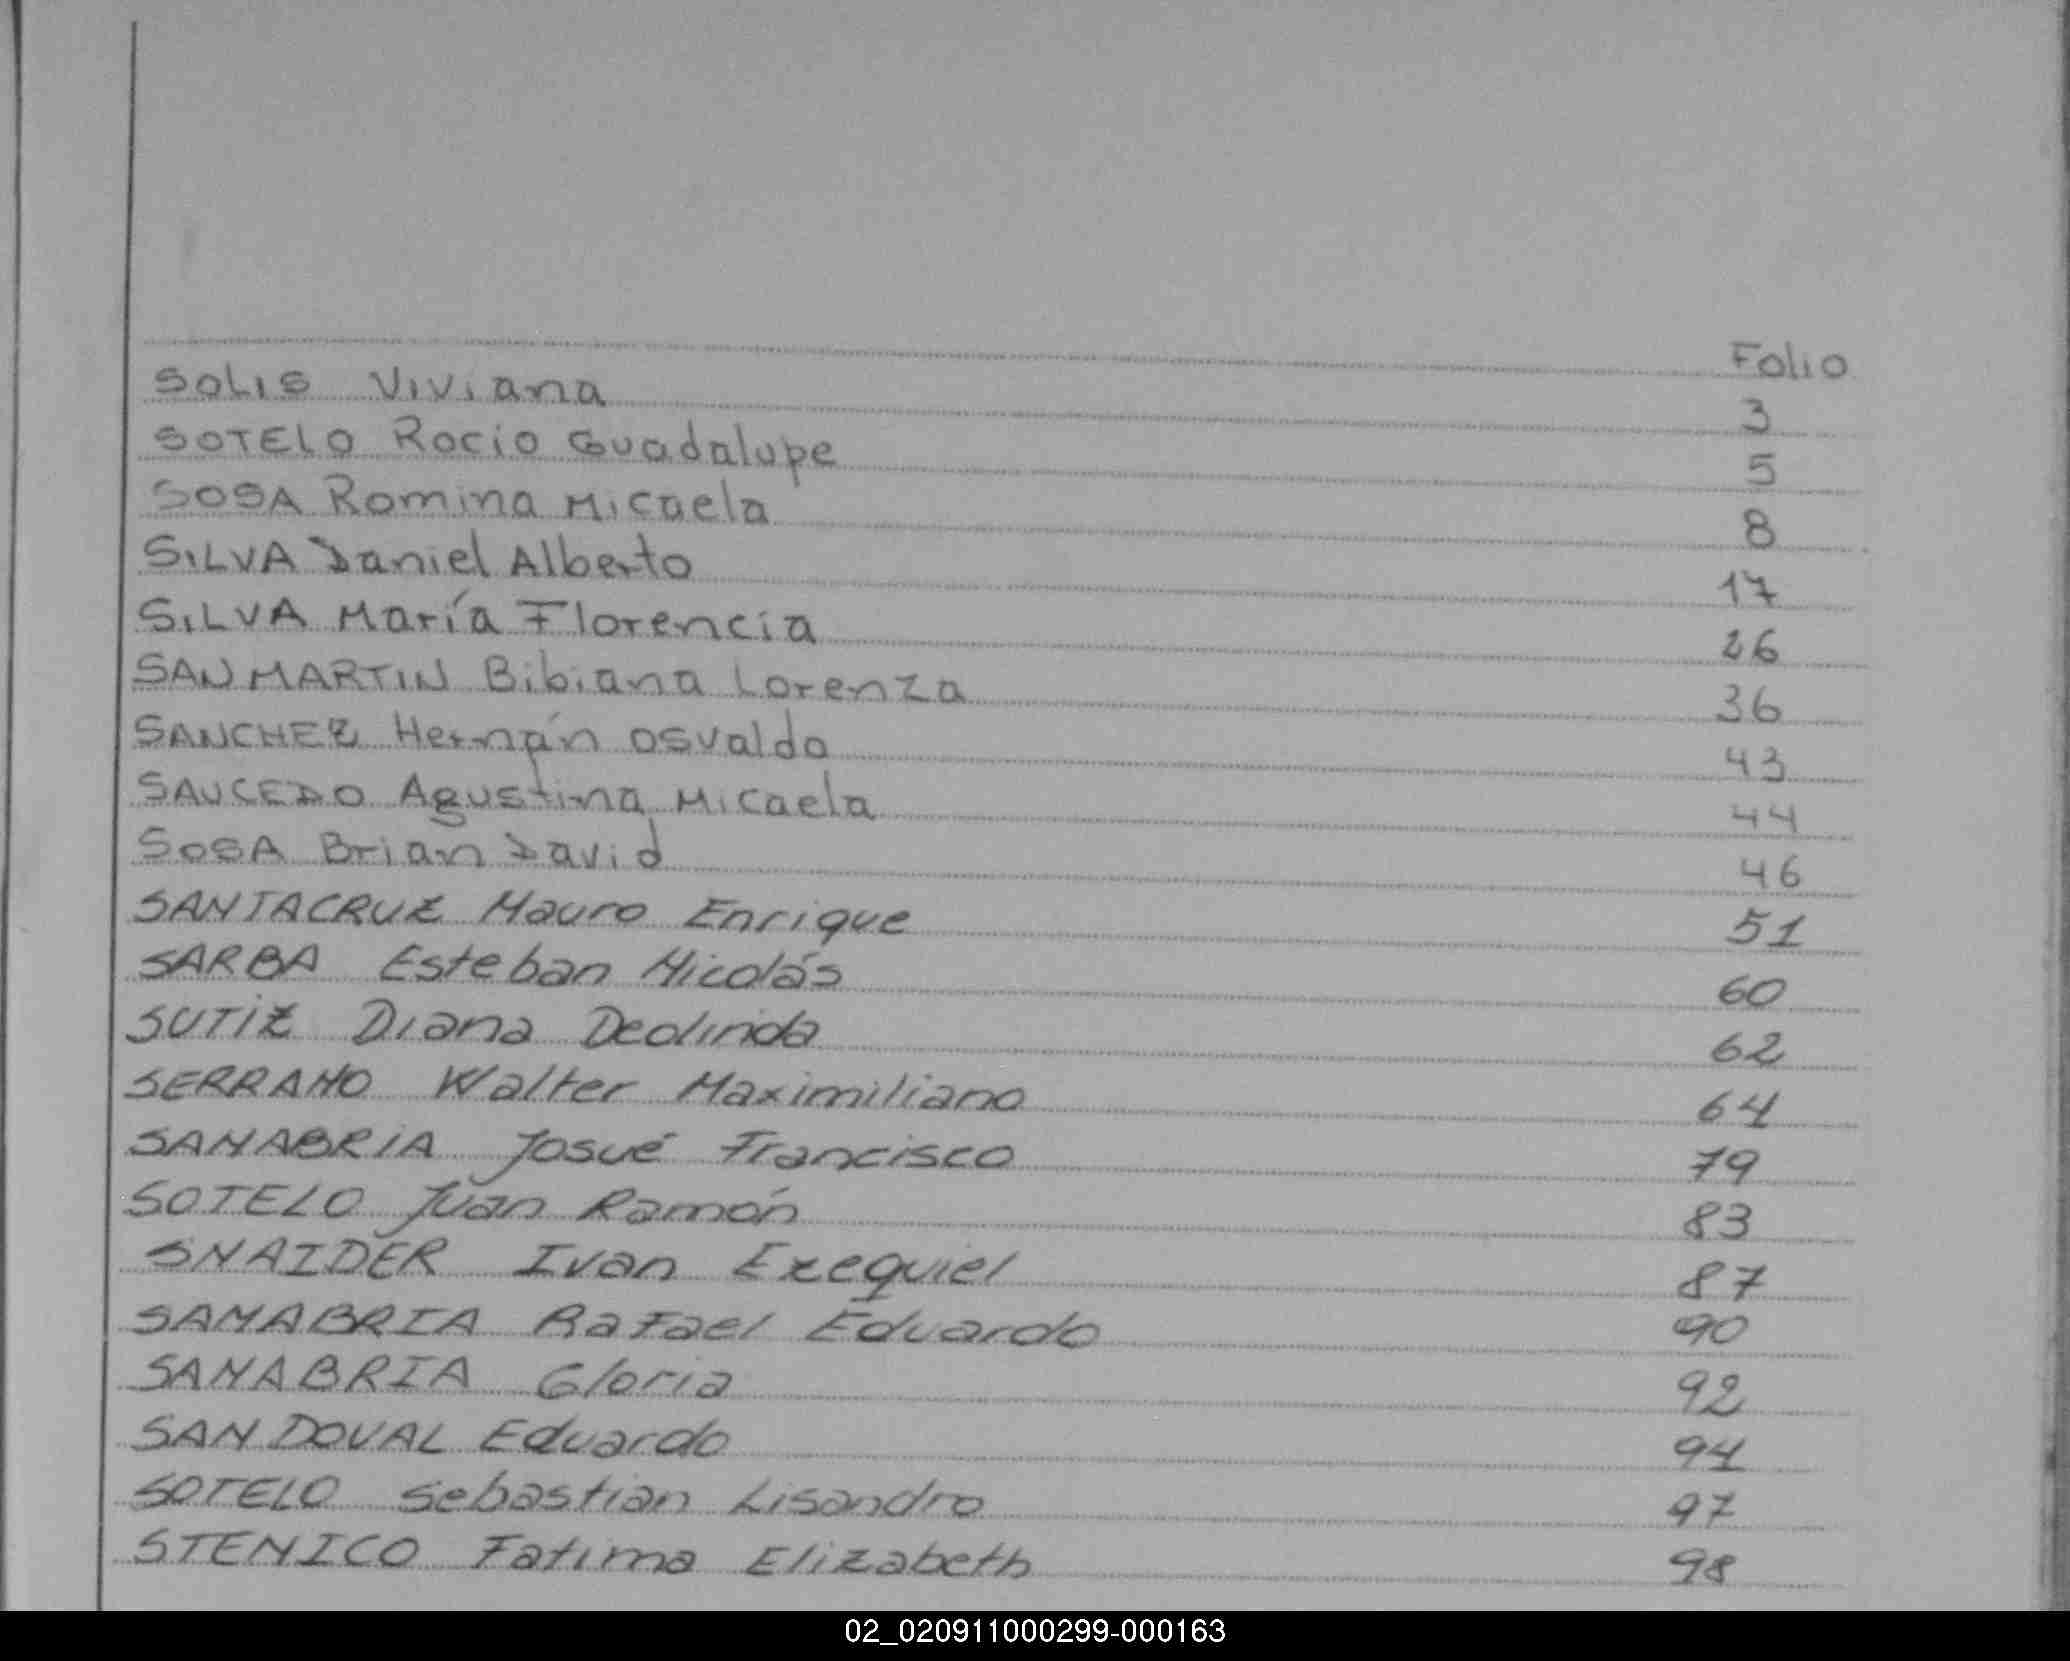 Folio
SOLIS Viviana 3
SOTELO Rocio Guadalupe 5
SOSA Romina Micaela 8
SILVA Daniel Alberto 17
SILVA María Florencia 26
SANMARTIN Bibiana Lorenza 36
SANCHEZ Hernán Osvaldo 43
SAUCEDO Agustina Micaela 44
SOSA Brian David 46
SANTACRUZ Mauro Enrique 51
SARBA Esteban Nicolás 60
SUTIZ Diana Deolinda 62
SERRANO Walter Maximiliano 64
SANABRIA Josué Francisco 79
SOTELO Juan Ramón 83
SNAIDER Ivan Ezequiel 87
SANABRIA Rafael Eduardo 90
SANABRIA Gloria 92
SANDOVAL Eduardo 94
SOTELO Sebastian Lisandro 97
STENICO Fatima Elizabeth 98
02_020911000299-000163